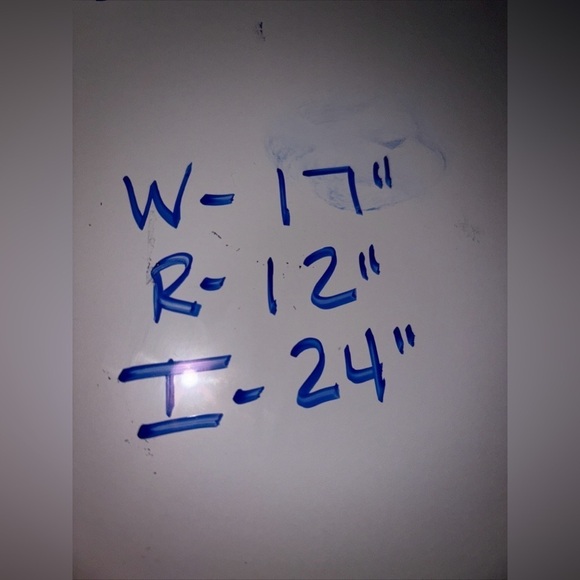 W- 17"
R- 12"
I- 24"